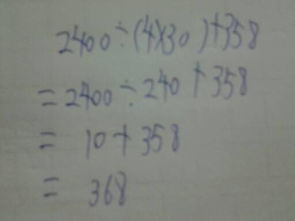 2400÷(4×30)+358
=2400÷240+358
= 10+358
= 368